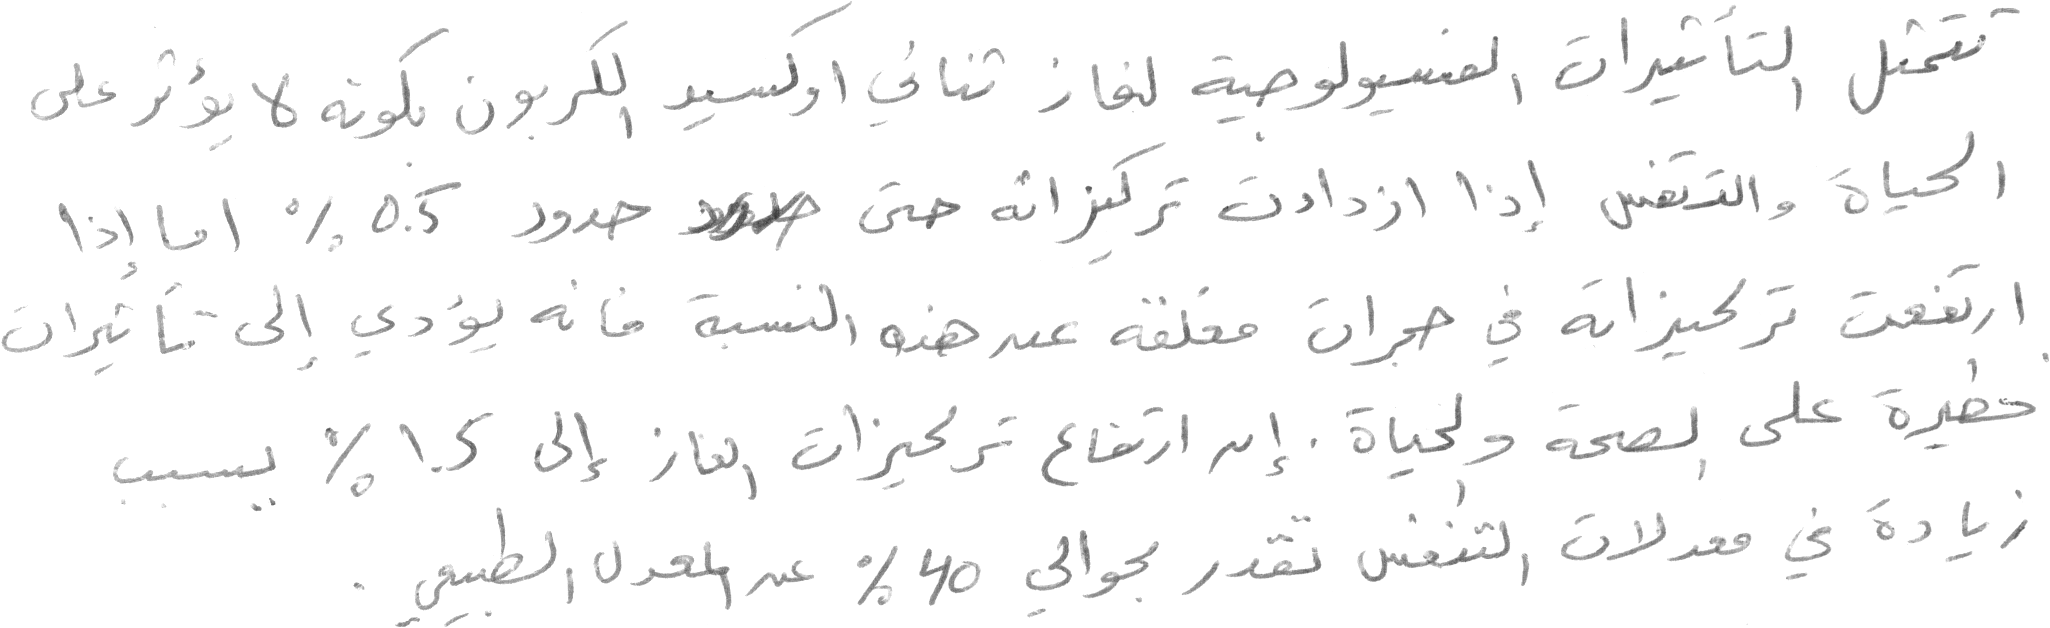 تتمثل التأثيرات الفسيولوجية لغاز ثنائي اوكسيد الكربون بكونه لا يؤثر على
الحياة والتنفس إذا ازدادت تركيزاته حتى حدود 0.5 % اما إذا
ارتفعت تركيزاته في حجرات مغلقة عن هذه النسبة فانه يؤدي إلى تأثيرات
خطيرة على الصحة والحياة . إن ارتفاع تركيزات الغاز إلى 1.5 % يسبب
زيادة في معدلات التنفس تقدر بحوالي 40 % عن المعدل الطبيعي .